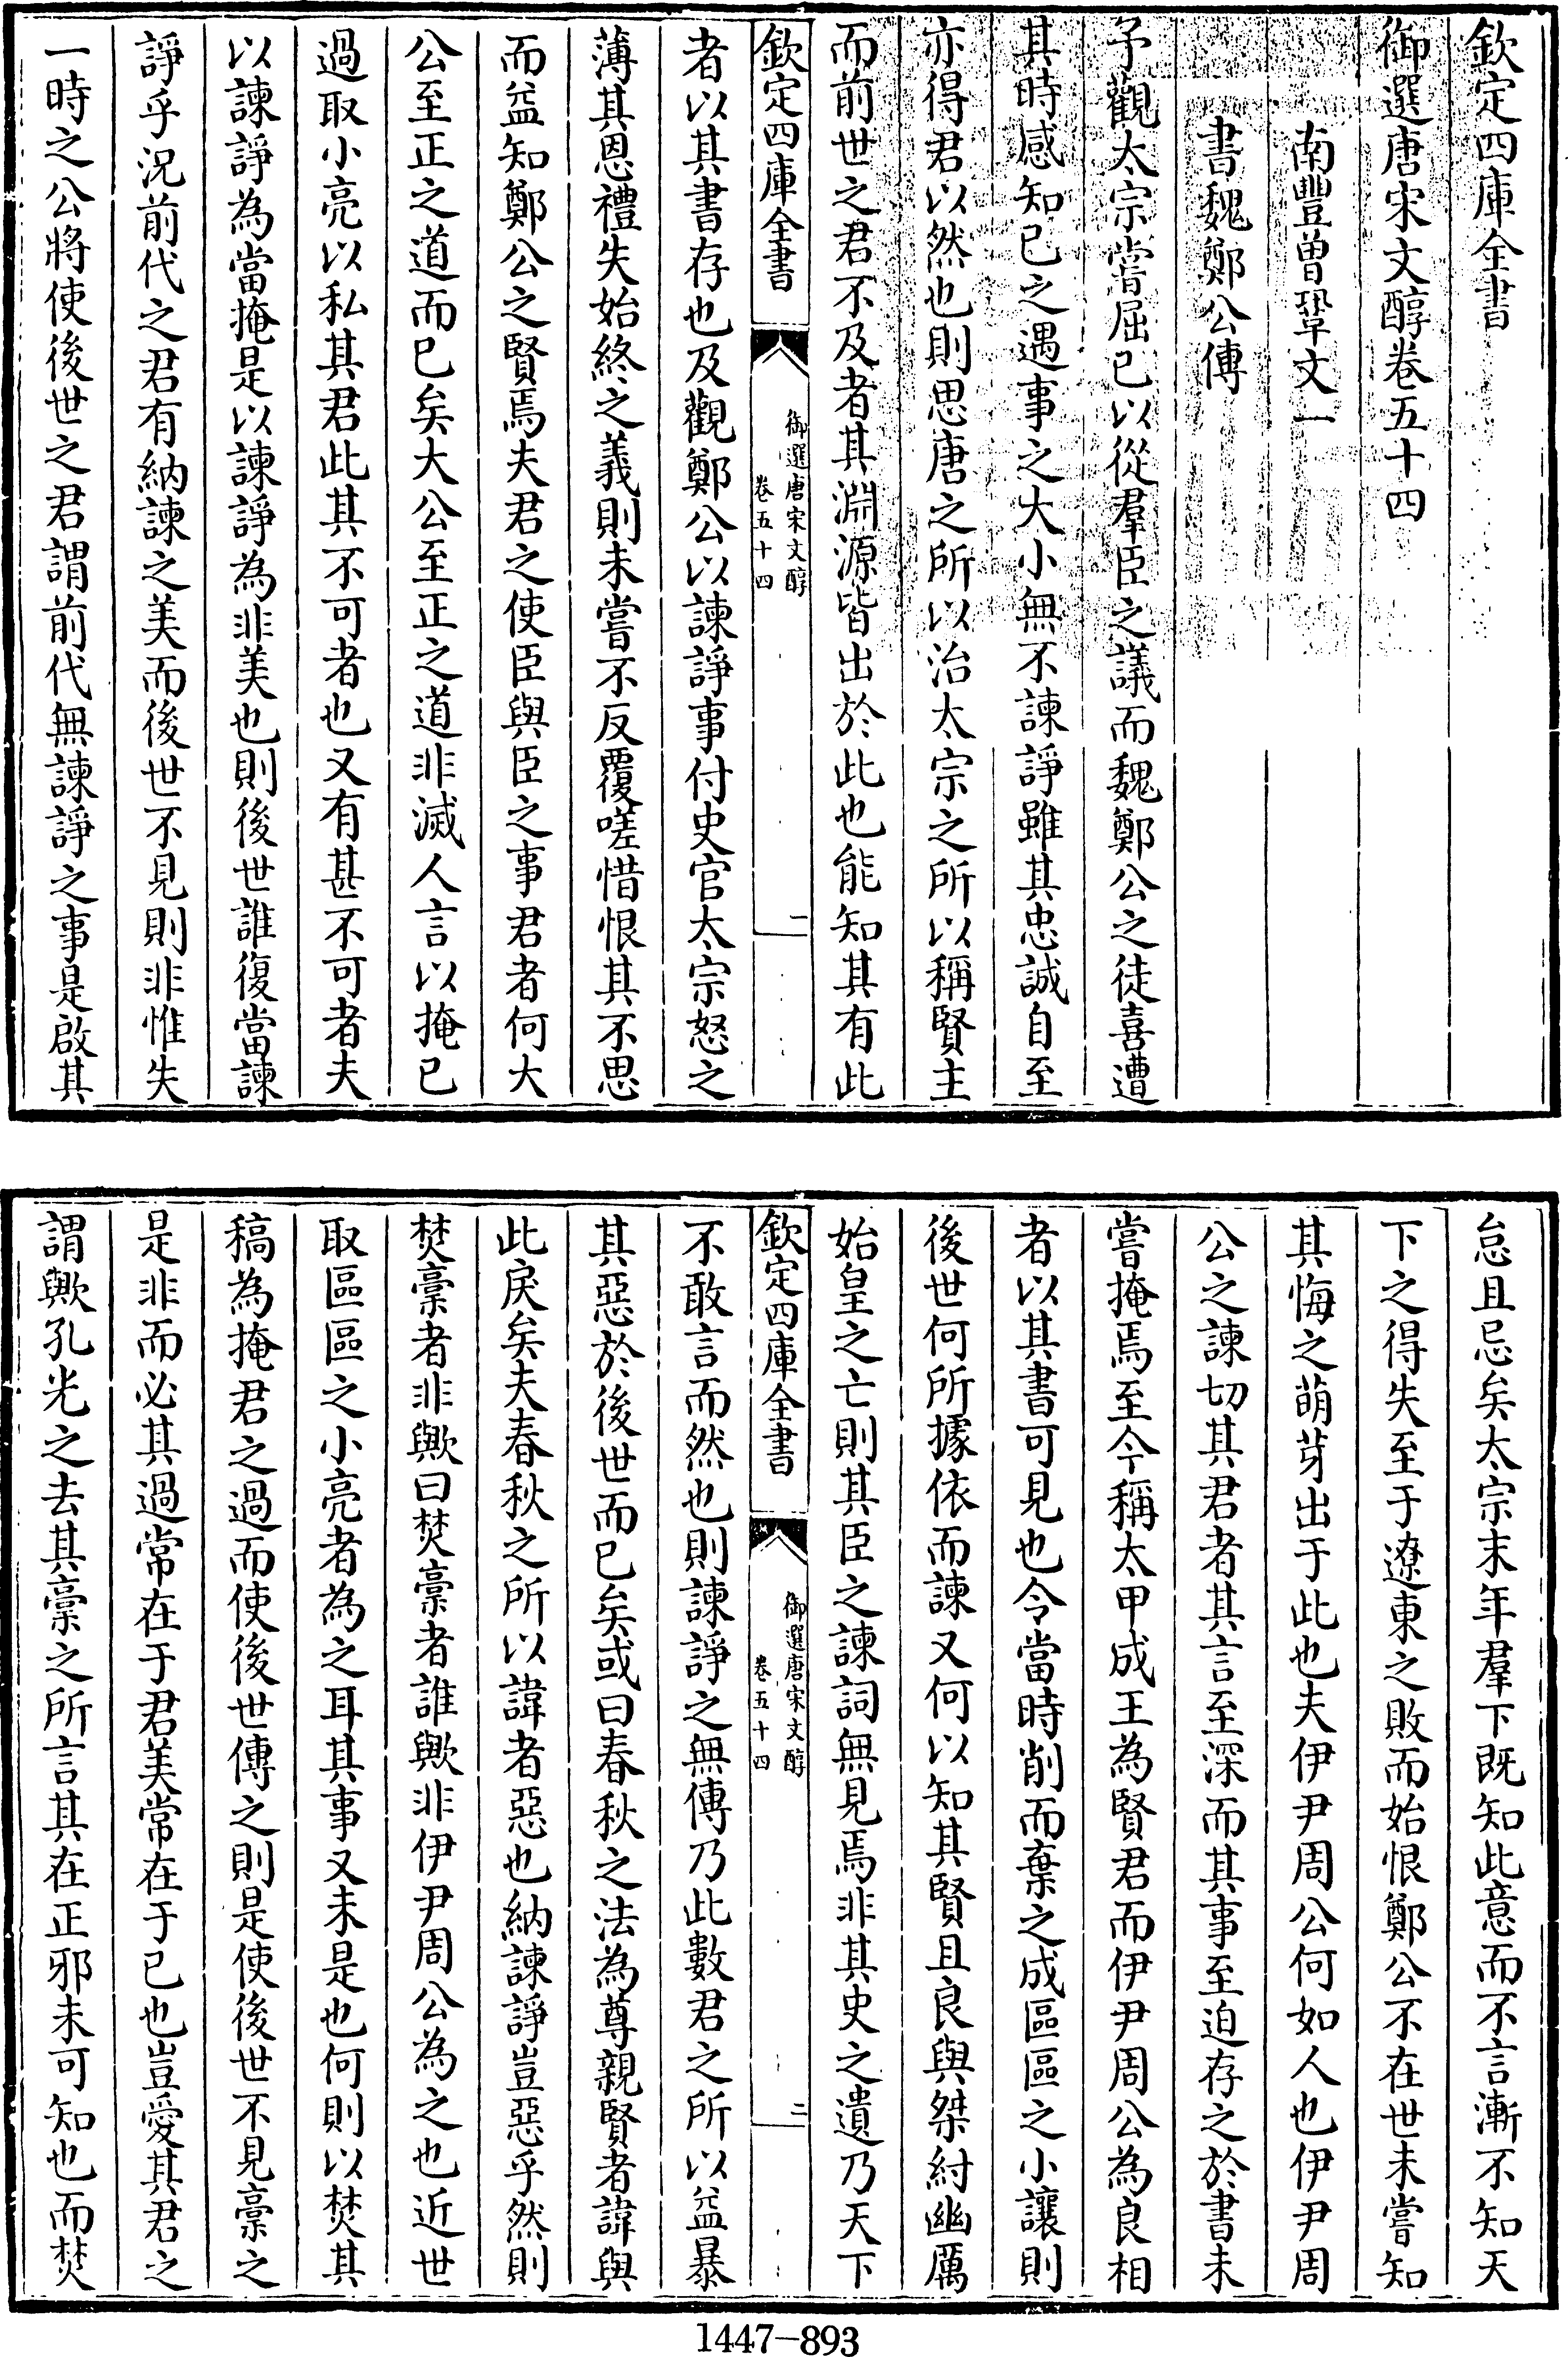 欽定四庫全書
御選唐宋文醇卷五十四
南豐曾鞏文一
書魏鄭公傳
予觀太宗嘗屈已以從羣臣之議而魏鄭公之徒喜遭
其時感知已之遇事之大小無不諫諍雖其忠誠自至
亦得君以然也則思唐之所以治太宗之所以稱賢主
而前世之君不及者其淵源皆出於此也能知其有此
欽定四庫全書
御選唐宋文醇
卷五十四
一
者以其書存也及觀鄭公以諫諍事付史官太宗怒之
薄其恩禮失始終之義則未嘗不反覆嗟惜恨其不思
而益知鄭公之賢焉夫君之使臣與臣之事君者何大
公至正之道而已矣大公至正之道非滅人言以掩已
過取小亮以私其君此其不可者也又有甚不可者夫
以諫諍為當掩是以諫諍為非美也則後世誰復當諫
諍乎況前代之君有納諫之美而後世不見則非惟失
一時之公將使後世之君謂前代無諫諍之事是啟其
怠且忌矣太宗末年羣下既知此意而不言漸不知天
下之得失至于遼東之敗而始恨鄭公不在世未嘗知
其悔之萌芽出于此也夫伊尹周公何如人也伊尹周
公之諫切其君者其言至深而其事至迫存之於書未
嘗掩焉至今稱太甲成王為賢君而伊尹周公為良相
者以其書可見也令當時削而棄之成區區之小讓則
後世何所據依而諫又何以知其賢且良與桀紂幽厲
始皇之亡則其臣之諫詞無見焉非其史之遺乃天下
欽定四庫全書
御選唐宋文醇
卷五十四
二
不敢言而然也則諫諍之無傳乃此數君之所以益暴
其惡於後世而已矣或曰春秋之法為尊親賢者諱與
此戾矣夫春秋之所以諱者惡也納諫諍豈惡乎然則
焚稾者非歟曰焚稾者誰歟非伊尹周公為之也近世
取區區之小亮者為之耳其事又未是也何則以焚其
稿為掩君之過而使後世傳之則是使後世不見稾之
是非而必其過常在于君美常在于已也豈愛其君之
謂歟孔光之去其稾之所言其在正邪未可知也而焚
1447-893